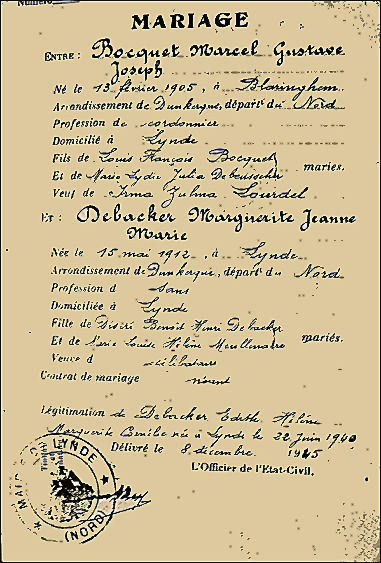 Numéro
MARIAGE
ENTRE : Bocquet Marcel Gustave
Joseph
Né le 13 février 1905, à Blaringhem
Arrondissement de Dunkerque, départ. du Nord
Profession de cordonnier
Domicilié à Lynde
Fils de Louis François Bocquet
Et de Marie Lydie Julia Debusscher mariés.
Veuf de Irma Julma Lourdel
ET : Debacker Marguerite Jeanne
Marie
Née le 15 mai 1912, à Lynde
Arrondissement de Dunkerque, départ. du Nord
Profession d sans
Domiciliée à Lynde
Fille de Désiré Benoît Henri Debacker mariés.
Et de Marie Louise Hélène
Veuve d célibataire
Contrat de mariage néant
Légitimation de Debacker Edith Hélène
Marguerite née à Lynde le 22 juin 1940
Délivré le 8 décembre 1945
L'Officier de l'État-Civil,
LYNDE
(NORD)